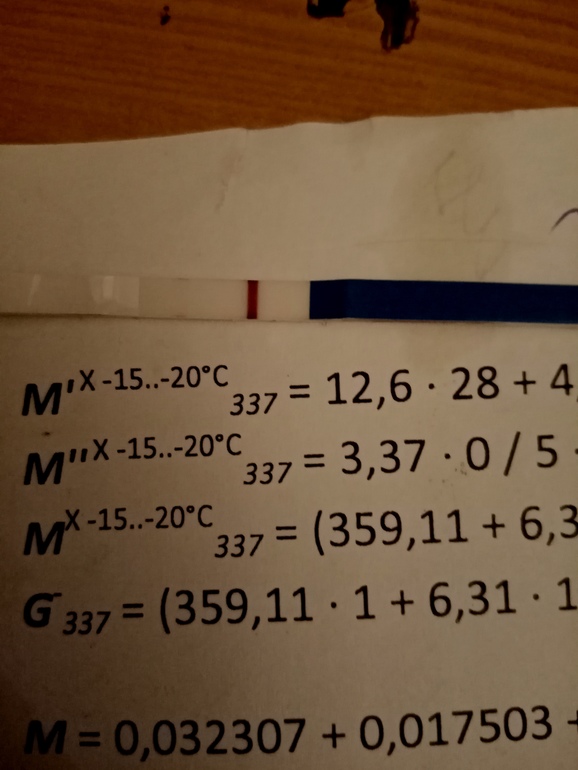 M'X -15..-20°C 337 = 12,6 · 28 + 4,
M''X -15..-20°C 337 = 3,37 · 0 / 5 ·
MX -15..-20°C 337 = (359,11 + 6,3
G 337 = (359,11 · 1 + 6,31 · 1
M = 0,032307 + 0,017503 +